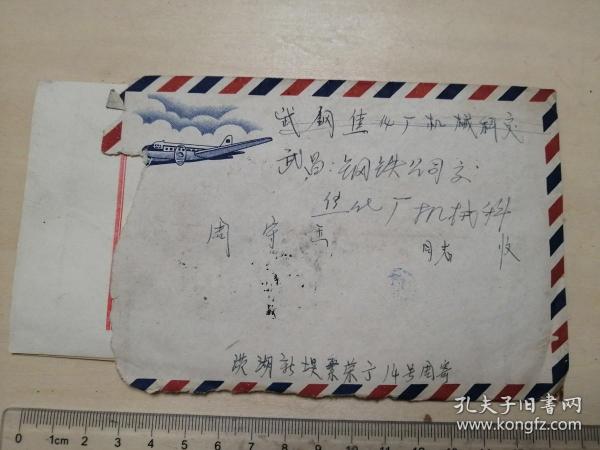 武钢焦化厂机械科交
武昌:钢铁公司交
焦化厂机械科
周守 同志 收
芜湖新坝繁荣 14号周寄
0 1cm 2 3 4 5 6 7 8 9 10 11 12 13 14 15 16
孔夫子旧书网
www.kongfz.com